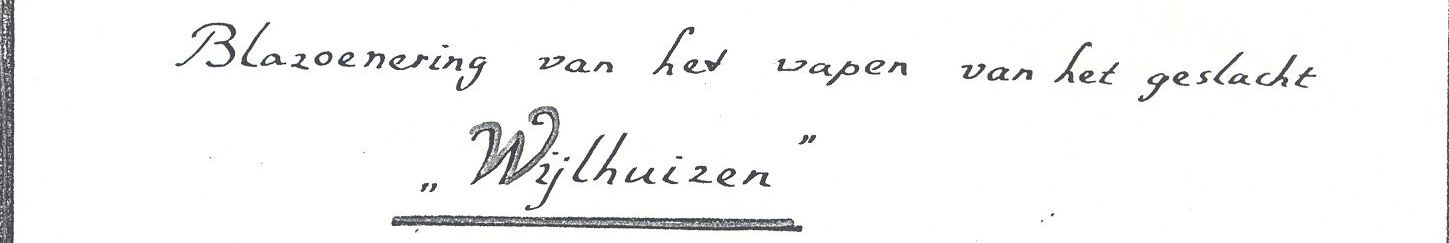 Blazoenering van het wapen van het geslacht
„Wijlhuizen”